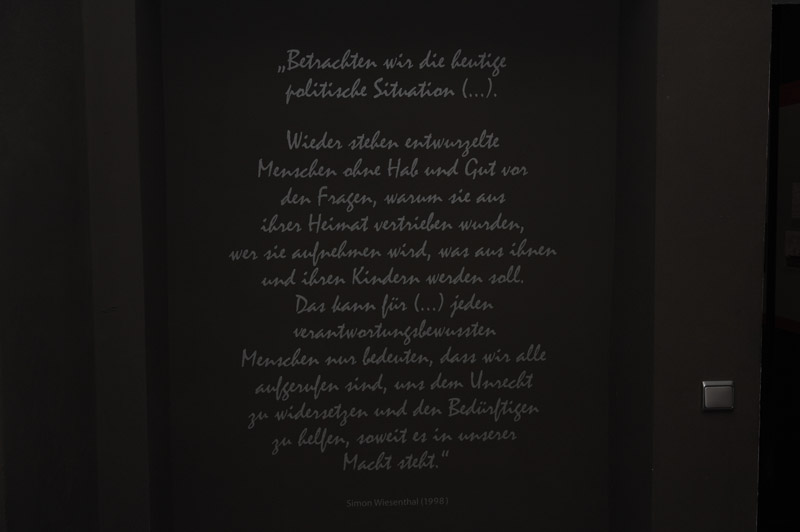 „Betrachten wir die heutige
politische Situation (...).
Wieder stehen entwurzelte
Menschen ohne Hab und Gut vor
den Fragen, warum sie aus
ihrer Heimat vertrieben wurden,
wer sie aufnehmen wird, was aus ihnen
und ihren Kindern werden soll.
Das kann für (...) jeden
verantwortungsbewussten
Menschen nur bedeuten, dass wir alle
aufgerufen sind, uns dem Unrecht
zu widersetzen und den Bedürftigen
zu helfen, soweit es in unserer
Macht steht.“
Simon Wiesenthal (1998)